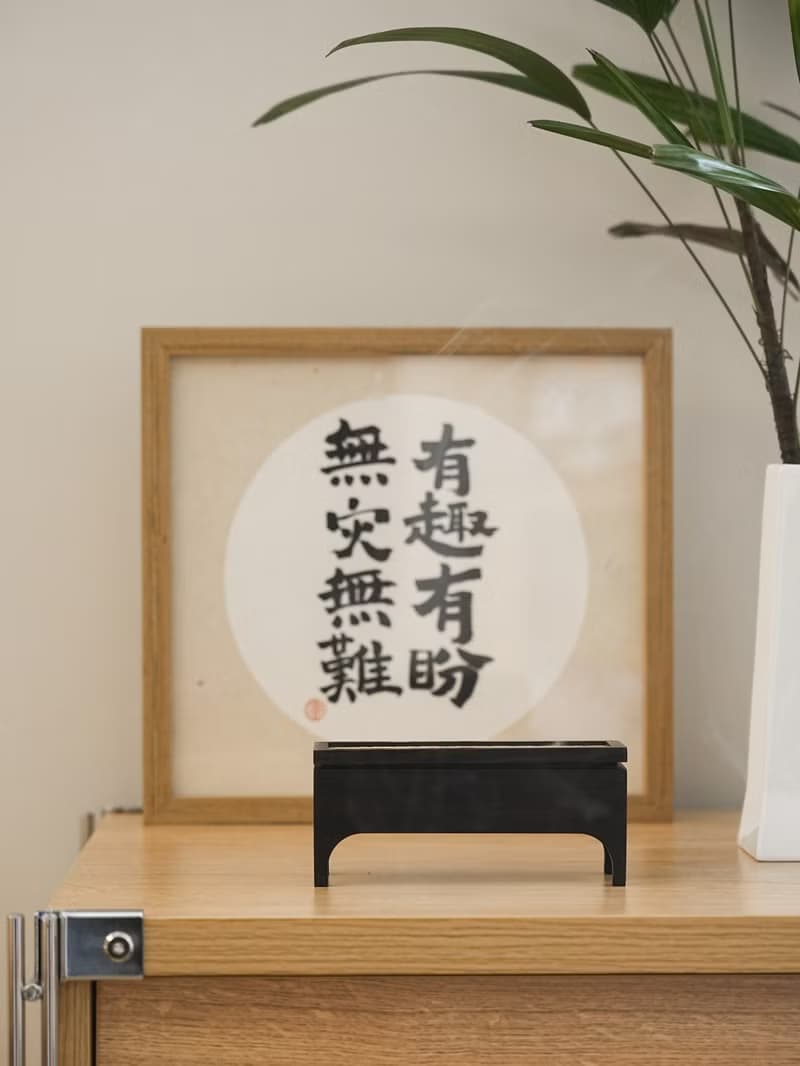 有趣有盼
無灾無難